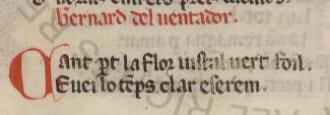 Bernard del uentador.
Cant p̃t la flor iustal uert foil.
E uei lo tẽps clar e serem.